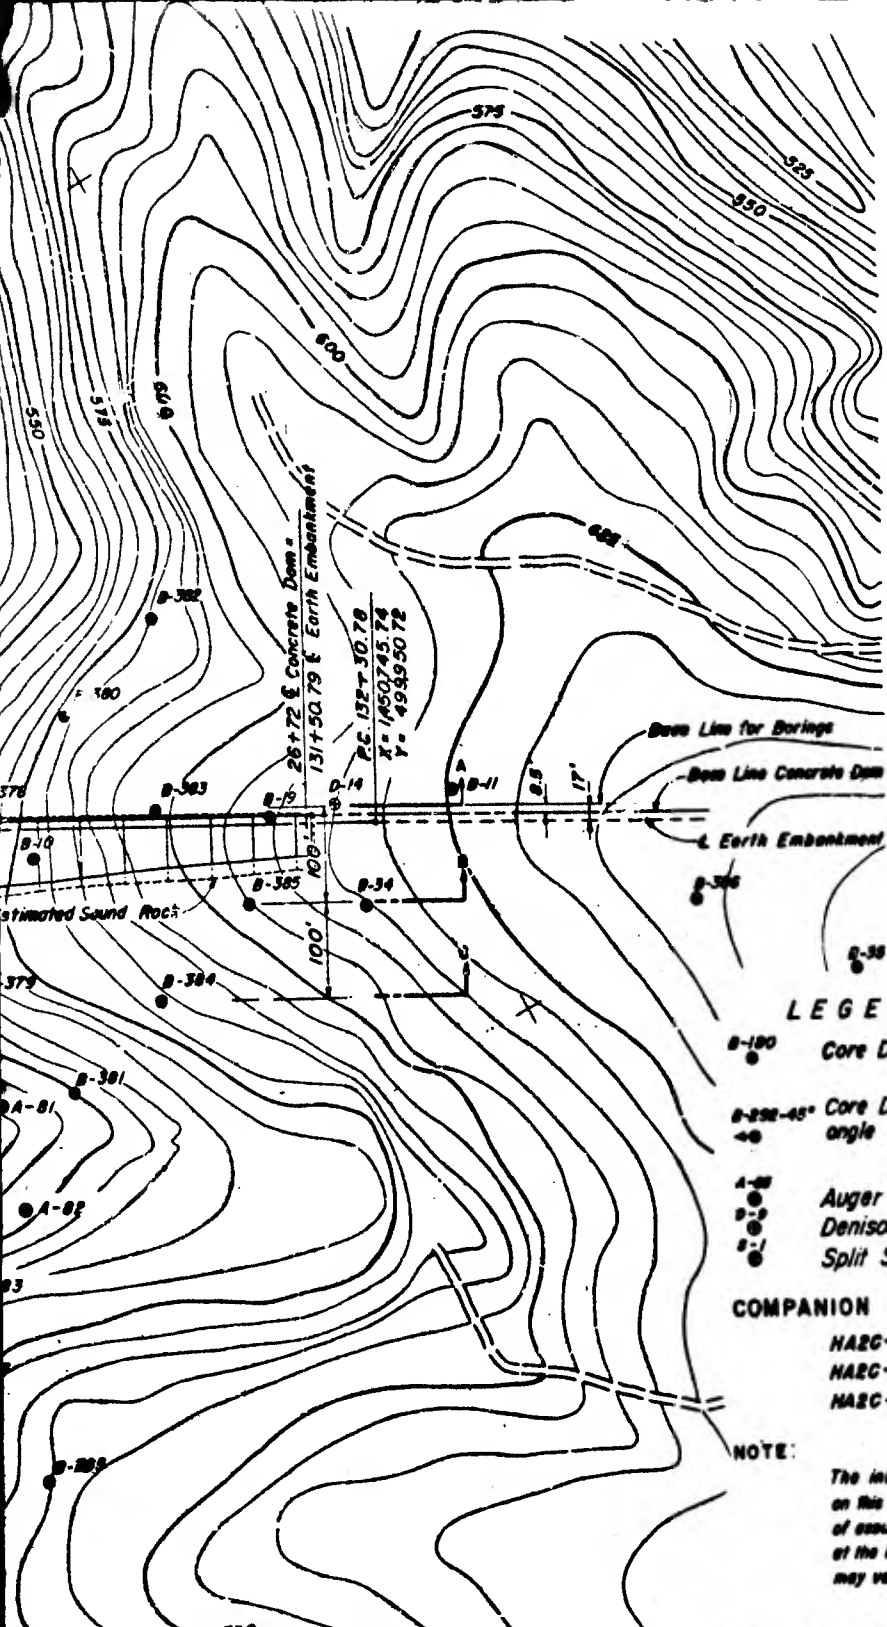 575
525
550
600
600
575
550
625
B-382
380
26+72 ℄ Concrete Dam =
131+50.79 ℄ Earth Embankment
P.C. 132+30.78
X = 1,450,745.74
Y = 499,950.72
Base Line for Borings
A
B-11
8.5'
17'
Base Line Concrete Dam
378
B-383
B-9
D-14
℄ Earth Embankment
B-10
100'
B
B-385
B-34
Estimated Sound Rock
100'
C
A
379
B-384
B-381
A-81
A-82
83
B-38
LEGE
B-180
Core D
B-292-45°
Core D
angle
Auger
D-9
Deniso
S-1
Split S
COMPANION
HA2C-
HA2C-
HA2C-
NOTE:
The in
on this
of assu
at the
may va